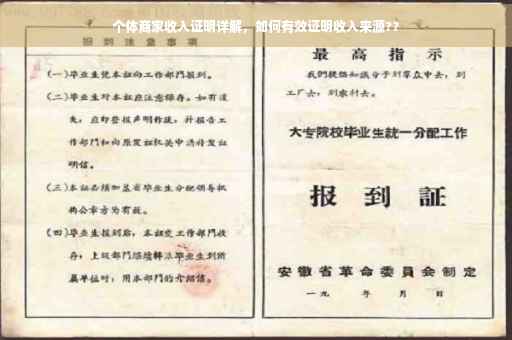 个体商家收入证明详解，如何有效证明收入来源??
报到注意事项
(一)毕业生凭本证向工作部门报到。
(二)毕业生对本证应注意保存。如有遗
失，应即登报声明作废，并报告工
作部门和向原发证机关申请补发证
明信。
(三)本证必须加盖省毕业生分配领导机
构公章方为有效。
(四)毕业生报到后，本证交工作部门收
存，上级部门继续转派毕业生到所
属单位时，用本部门的介绍信。
最高指示
我们提倡知识分子到羣众中去，到
工厂去，到农村去。
大专院校毕业生統一分配工作
报到証
安徽省革命委員会制定
一九 年 月 日